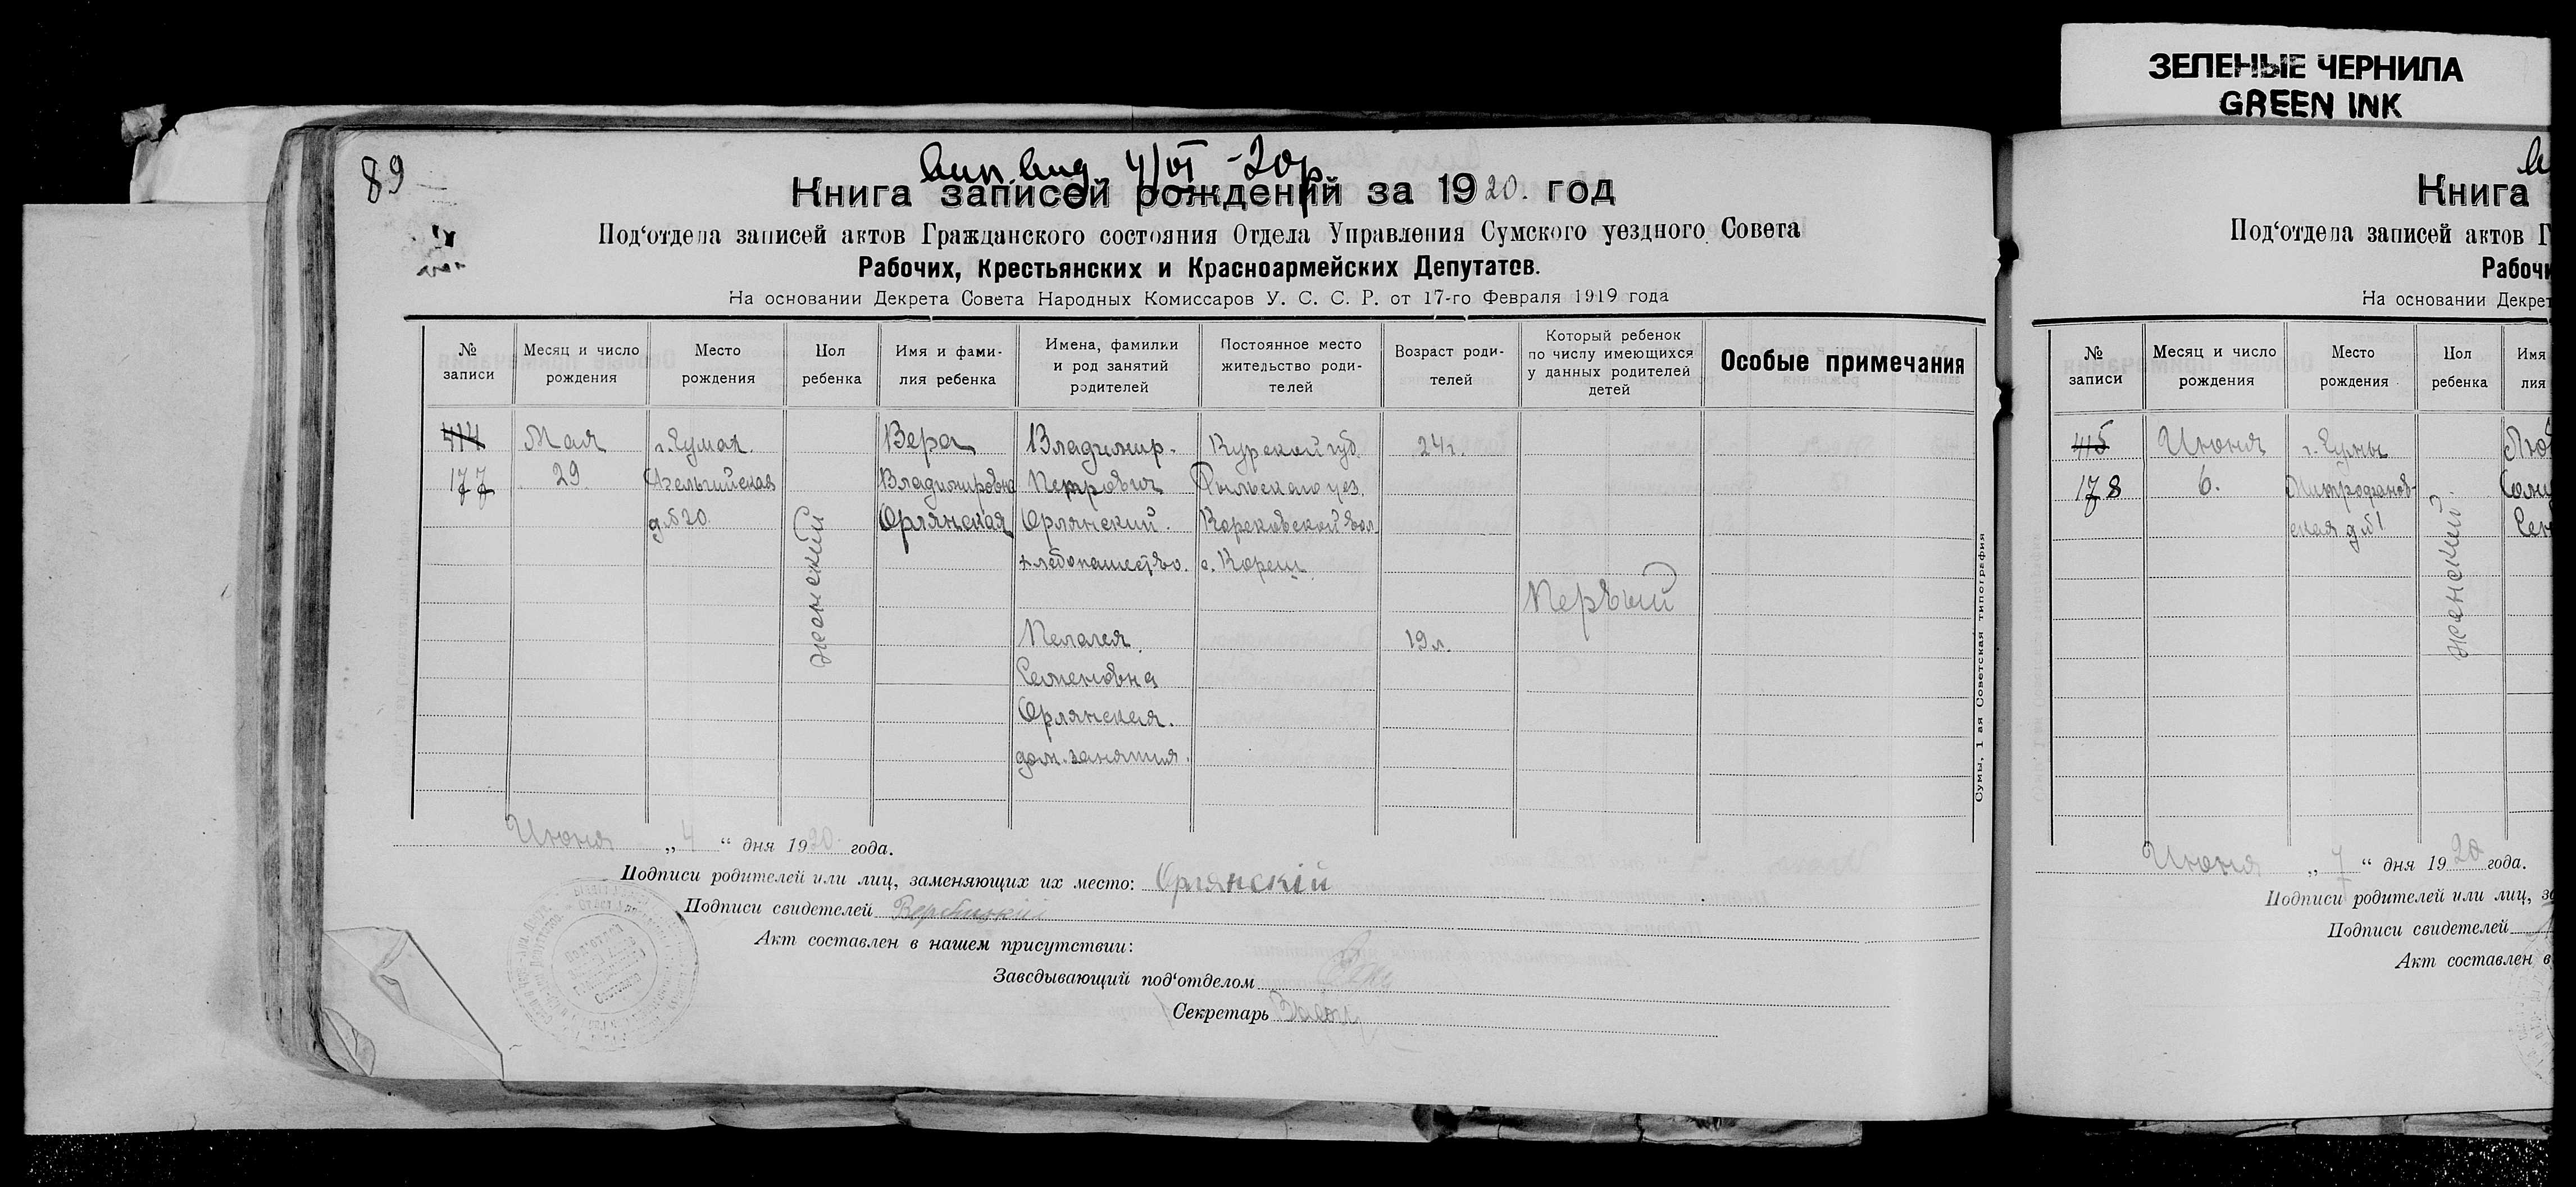 ЗЕЛЕНЫЕ ЧЕРНИЛА
GREEN INK
89
вып. выд. 4/VI -20р.
Книга записей рождений за 1920. год
Под‘отдела записей актов Гражданского состояния Отдела Управления Сумского уездного Совета
Рабочих, Крестьянских и Красноармейских Депутатов.
На основании Декрета Совета Народных Комиссаров У. С. С. Р. от 17-го Февраля 1919 года
№ записи
Месяц и число рождения
Место рождения
Пол ребенка
Имя и фами-
лия ребенка
Имена, фамилии
и род занятий
родителей
Постоянное место
жительство роди-
телей
Возраст роди-
телей
Который ребенок
по числу имеющихся
у данных родителей
детей
Особые примечания
414
177
Мая
29
г. Сумах.
д. №20.
женский
Вера
Владимировна
Орлянская
Владимир.
Петрович
Орлянский.
хлебопашество.
Пелагея
Семеновна
Орлянская.
дом. занятия.
Курской губ.
Рыльскаго уез.
Кореновской вол.
24 г.
19 л.
Первый
Сумы, 1 ая Советская типография
Июня „ 4 “ дня 1920 года.
Подписи родителей или лиц, заменяющих их место: Орлянскій
Подписи свидетелей Вербицкій
Акт составлен в нашем присутствии:
Заведывающий под‘отделом
Секретарь
Книга
Под‘отдела записей актов Г
Рабочи
На основании Декрет
№ записи
Месяц и число рождения
Место рождения
Пол ребенка
Имя
лия
415
178
Июня
6.
г. Сумы
Митрофанов-
ская д. №1
женский
Июня „ 7 “ дня 1920 года.
Подписи родителей или лиц, за
Подписи свидетелей
Акт составлен в